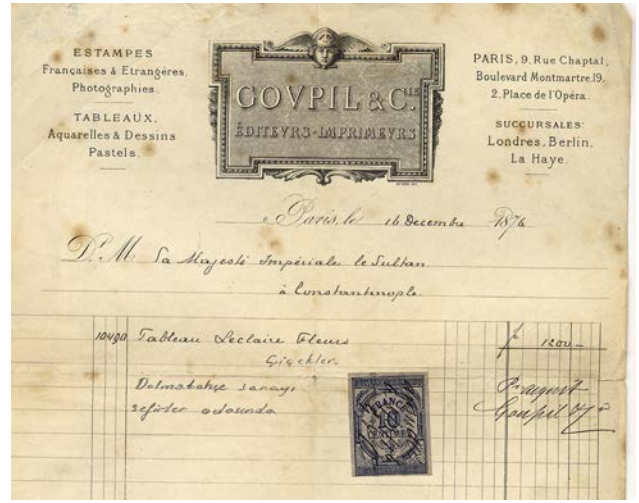 ESTAMPES
Françaises & Etrangères.
Photographies.
TABLEAUX,
Aquarelles & Dessins
Pastels.
GOVPIL & C.IE
ÉDITEVRS-IMPRIMEVRS
PARIS, 9. Rue Chaptal,
Boulevard Montmartre, 19,
2. Place de l'Opéra.
SUCCURSALES:
Londres, Berlin,
La Haye.
Paris, le 16 Decembre 1876
Dt. M Sa Majesté Impériale le Sultan
à Constantinople.
10490 Tableau Leclaire Fleurs f 1200 –
Çiçekler.
Dolmabahçe sarayı
sefirler odasında
Pr acquit
Goupil & Cie
FRANCE
10
CENTIMES